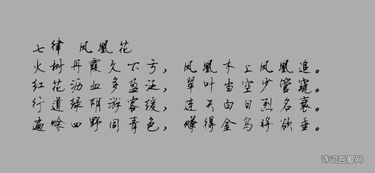 七律 凤凰花
火树丹霞久不亏，凤凰木上凤凰追。
红花沥血多，翠叶当空少管窥。
行道绿阴游客缓，连天白日烈名衰。
遍除四野同青色，赚得金乌将欲垂。
诗词吾爱网